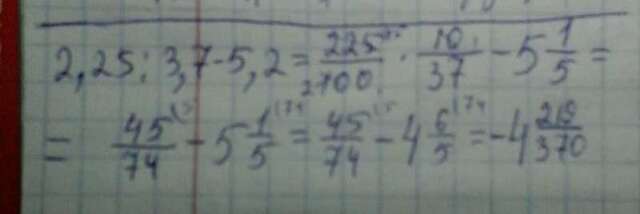 2,25 : 3,7 - 5,2 = 225/100 · 10/37 - 5 1/5 =
= 45/74 - 5 1/5 = 45/74 - 4 6/5 = -4 219/370